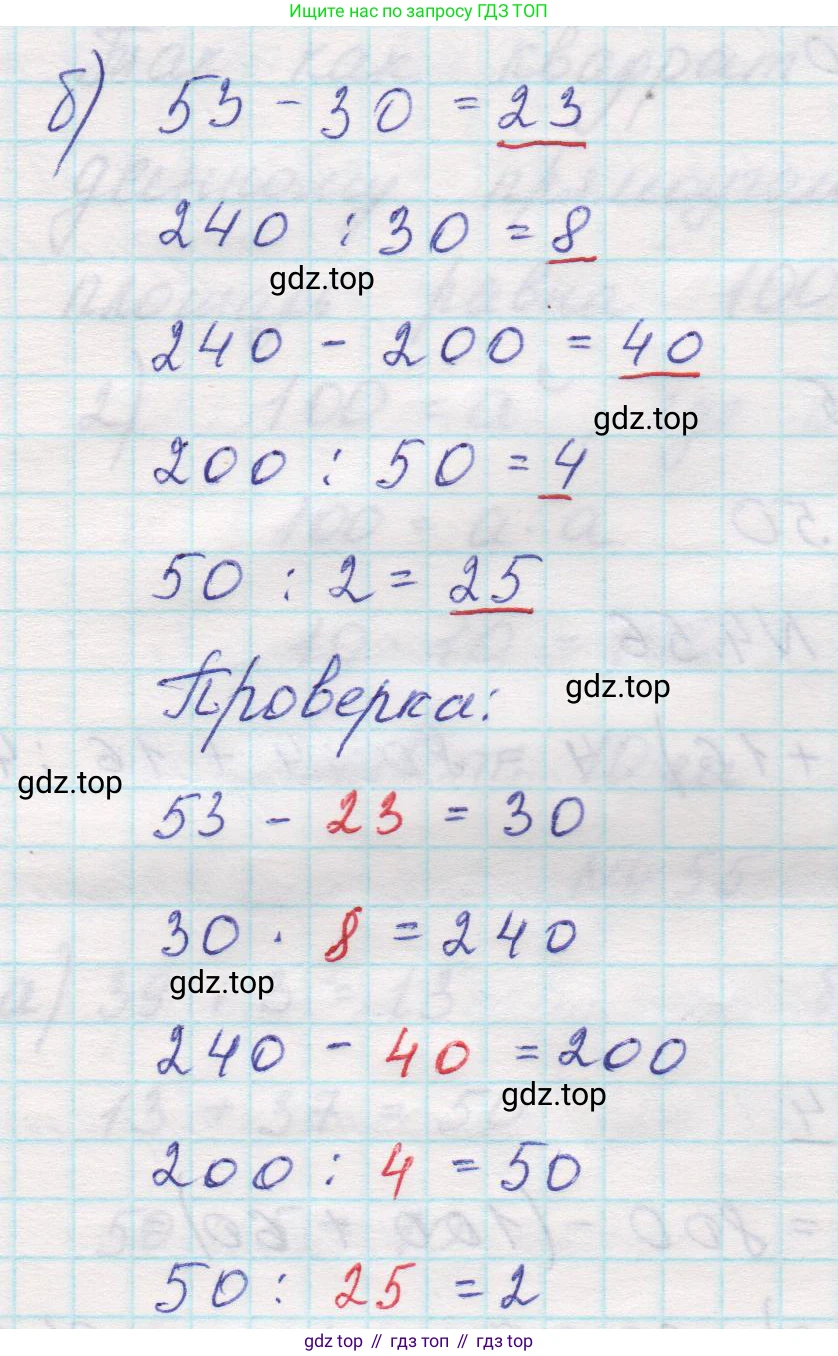 Ищите нас по запросу ГДЗ ТОП
б) 53 - 30 = 23
240 : 30 = 8
gdz.top
240 - 200 = 40
gdz.top
200 : 50 = 4
50 : 2 = 25
Проверка:
gdz.top
gdz.top
53 - 23 = 30
30 · 8 = 240
gdz.top
240 - 40 = 200
gdz.top
200 : 4 = 50
50 : 25 = 2
gdz top // гдз топ // гдз top